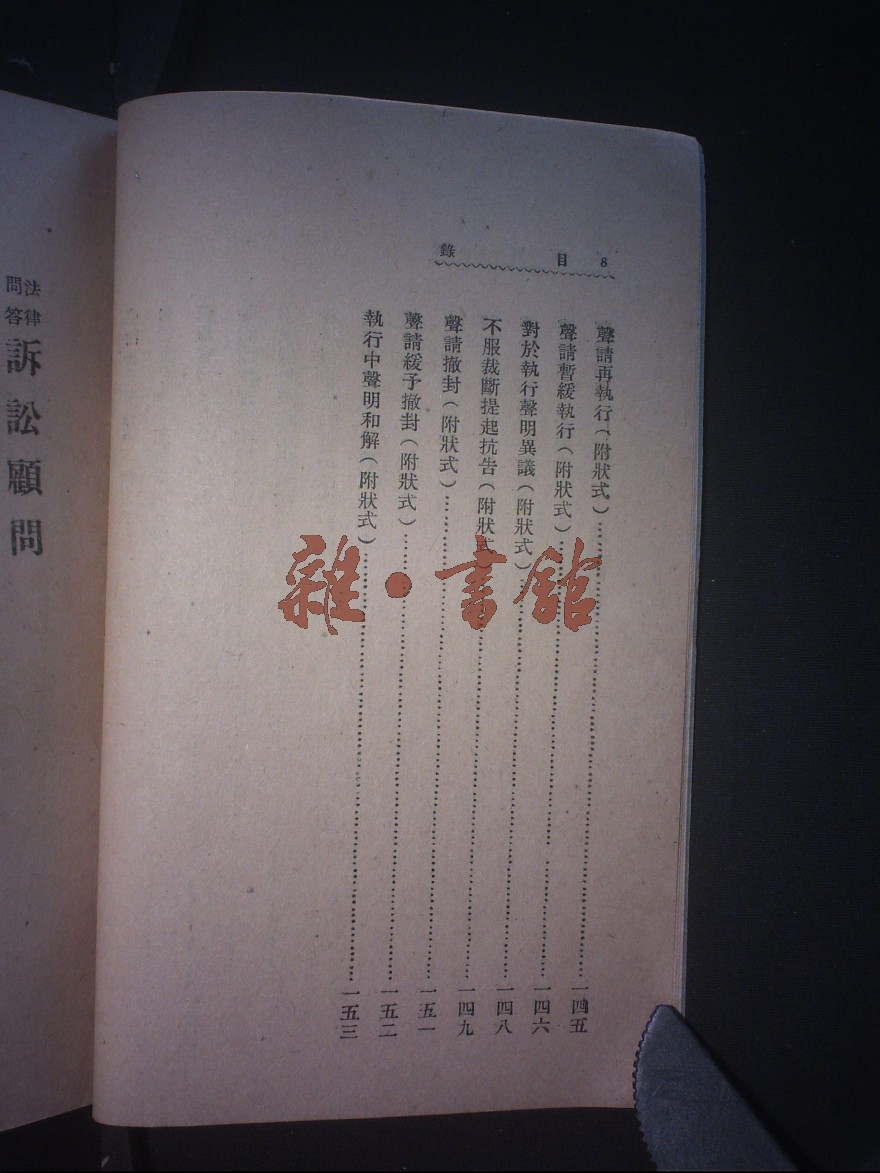 8 目錄
聲請再執行(附狀式)……一四五
聲請暫緩執行(附狀式)……一四六
對於執行聲明異議(附狀式)……一四八
不服裁斷提起抗告(附狀式)……一四九
聲請撤封(附狀式)……一五一
聲請緩予撤封(附狀式)……一五二
執行中聲明和解(附狀式)……一五三
法律問答
訴訟顧問
雜·書館